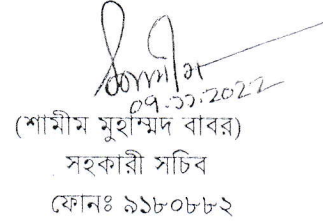 09.11.2022
(শামীম মুহাম্মদ বাবর)
সহকারী সচিব
ফোনঃ ৯১৮০৮৮২